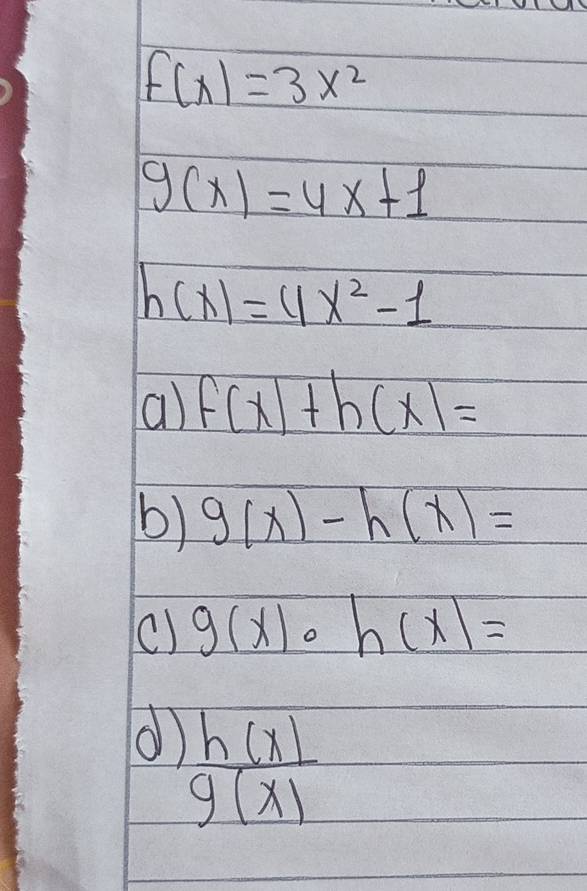 f(x) = 3x²
g(x) = 4x+1
h(x) = 4x² - 1
a) f(x) + h(x) =
b) g(x) - h(x) =
c) g(x) ∘ h(x) =
d) h(x)
g(x)